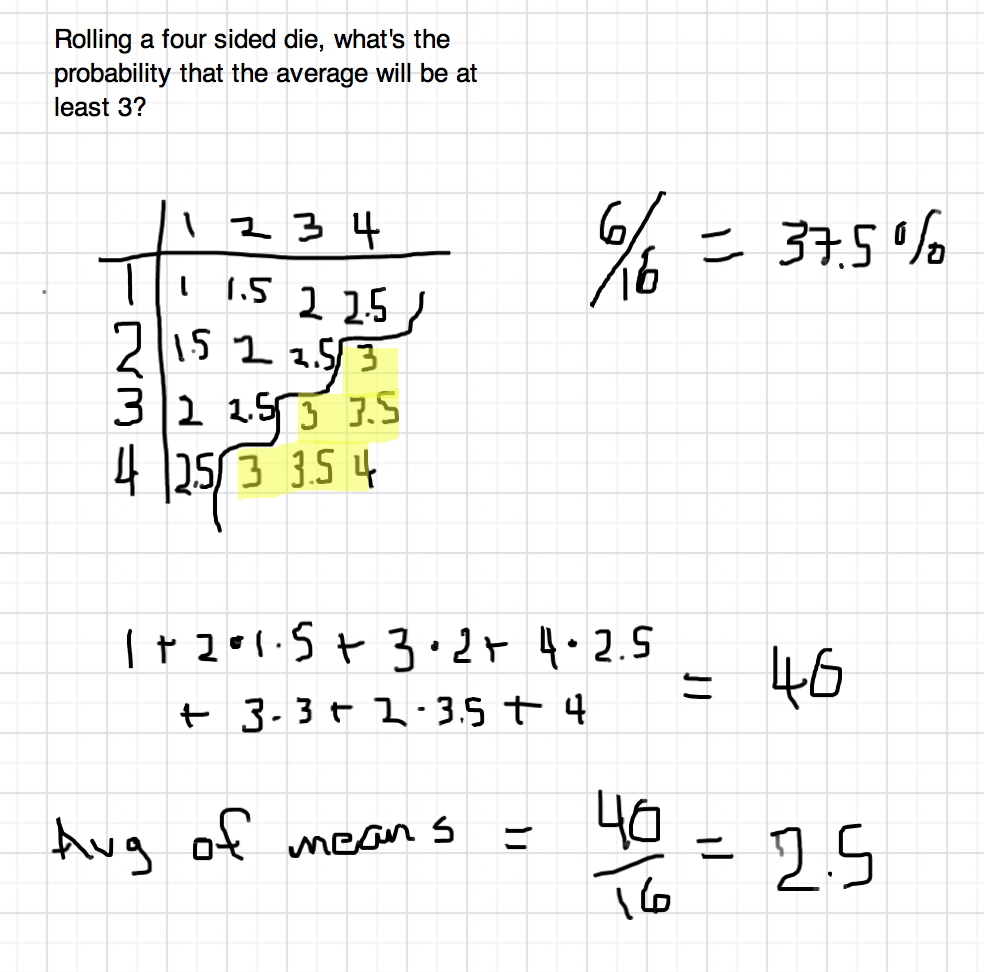 Rolling a four sided die, what's the
probability that the average will be at
least 3?
1 2 3 4
1 1 1.5 2 2.5
2 1.5 2 2.5 3
3 2 2.5 3 3.5
4 2.5 3 3.5 4
6/16 = 37.5%
1 + 2•1.5 + 3•2 + 4•2.5
+ 3•3 + 2•3.5 + 4 = 40
Avg of means = 40/16 = 2.5